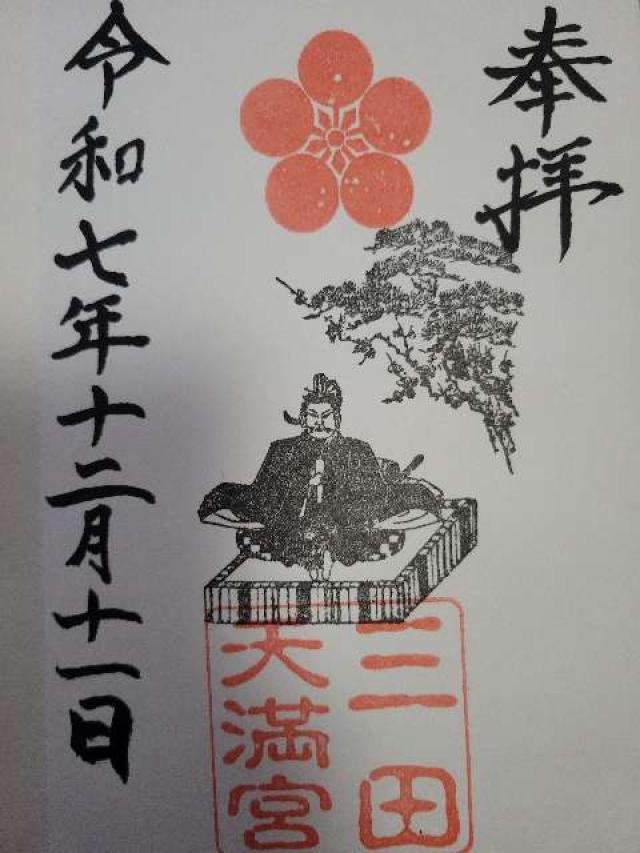 奉拝
三田
天満宮
令和七年十二月十一日